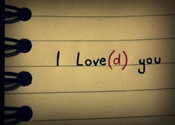 I Love(d) you